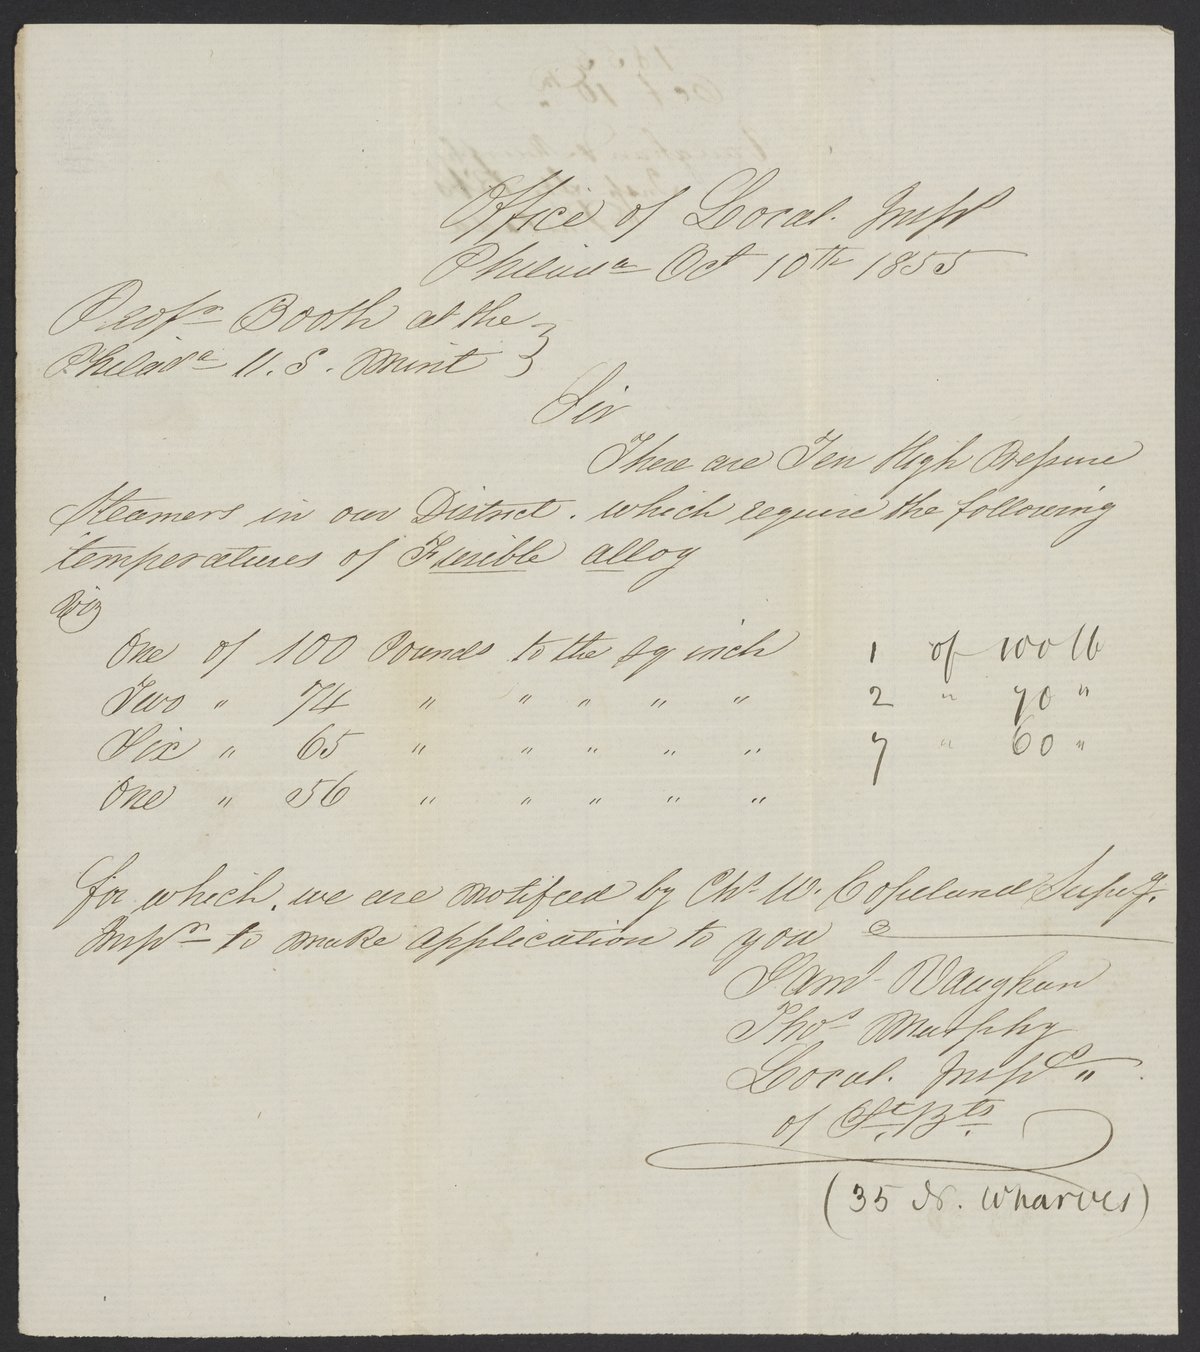 Office of Local. Inspr
Philada Oct 10th 1855
Profr Booth at the
Philada U.S. Mint
Sir
There are Ten High Pressure
Steamers in our District. which require the following
temperatures of Fusible alloy
Viz
One of 100 Pounds to the sq inch 1 of 100 lb
Two " 74 " " " " " 2 " 70 "
Six " 65 " " " " " 7 " 60 "
One " 56 " " " " "
for which, we are notifeed by Chs W. Copeland Superg.
Inspr to make application to you
Saml Vaughan
Thos Murphy
Local. Inspr "
of St. Bts.
(35 N. Wharves)